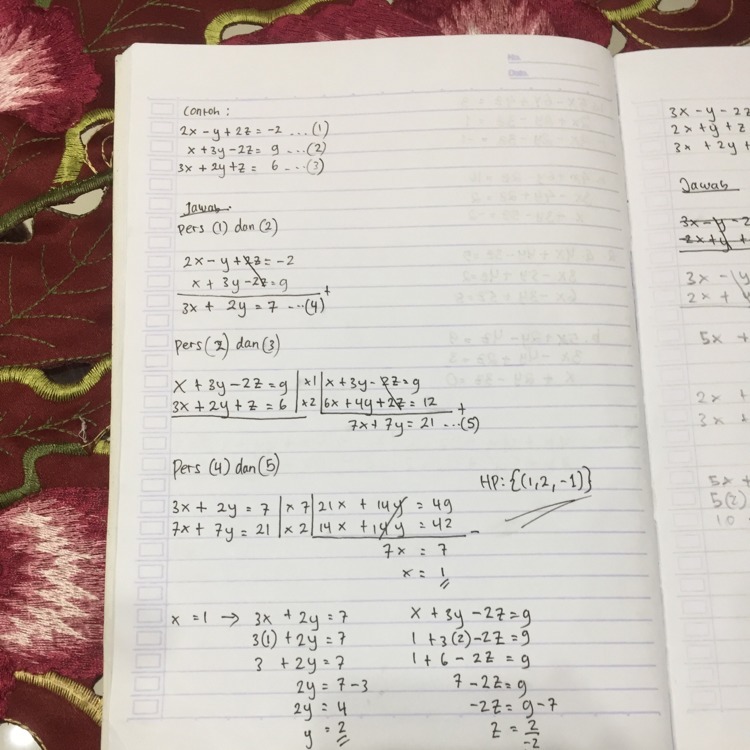 No.
Date.
Contoh :
2x - y + 2z = -2 ... (1)
x + 3y - 2z = 9 ... (2)
3x + 2y + z = 6 ... (3)
Jawab.
Pers (1) dan (2)
2x - y + 2z = -2
x + 3y - 2z = 9 +
3x + 2y = 7 ... (4)
Pers (2) dan (3)
x + 3y - 2z = 9 | x1 | x + 3y - 2z = 9
3x + 2y + z = 6 | x2 | 6x + 4y + 2z = 12 +
7x + 7y = 21 ... (5)
Pers (4) dan (5)
HP: {(1, 2, -1)}
3x + 2y = 7 | x 7 | 21x + 14y = 49
7x + 7y = 21 | x 2 | 14x + 14y = 42 -
7x = 7
x = 1
x = 1 → 3x + 2y = 7
3(1) + 2y = 7
3 + 2y = 7
2y = 7 - 3
2y = 4
y = 2
x + 3y - 2z = 9
1 + 3(2) - 2z = 9
1 + 6 - 2z = 9
7 - 2z = 9
-2z = 9 - 7
z = 2/-2
3x - y - 2z
2x + y + z
3x + 2y +
Jawab
3x - y - 2
2x + y +
3x - y
2x +
5x +
2x +
3x +
5x +
5(2)
10